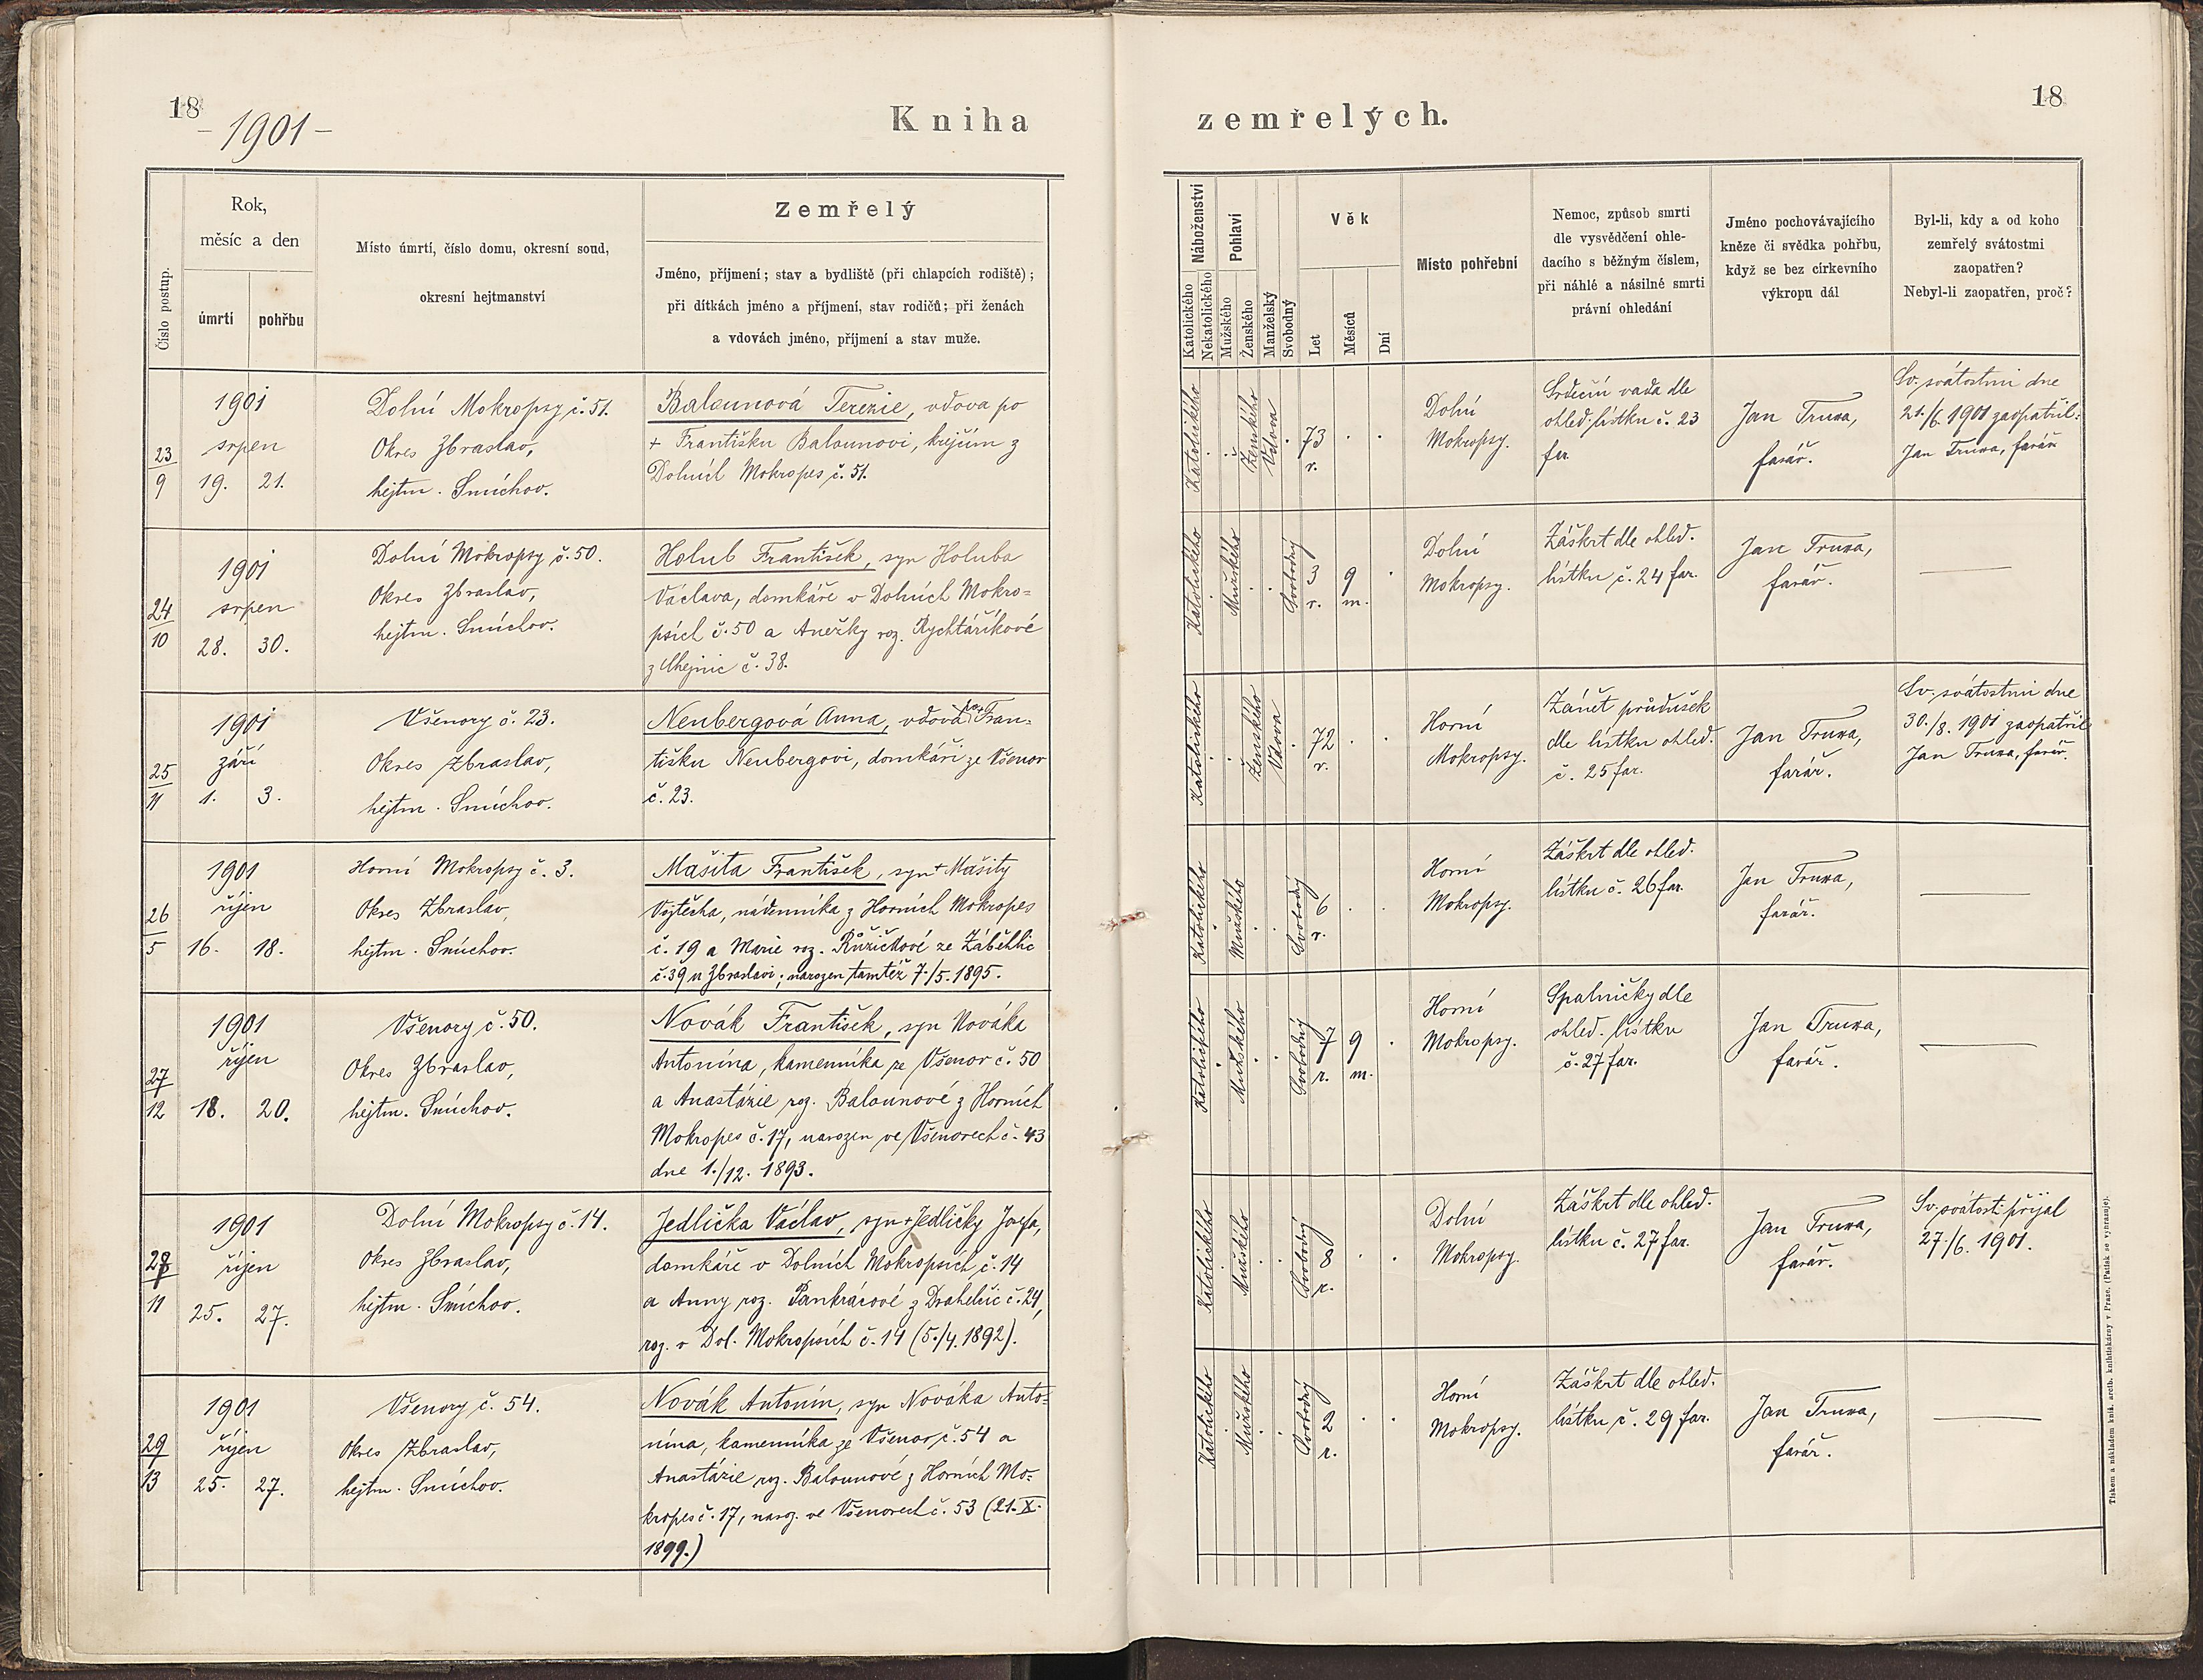 18
- 1901 -
Kniha
Číslo postup.
Rok,
měsíc a den
úmrtí
pohřbu
Místo úmrtí, číslo domu, okresní soud,
okresní hejtmanství
Zemřelý
Jméno, příjmení; stav a bydliště (při chlapcích rodiště);
při dítkách jméno a příjmení, stav rodičů; při ženách
a vdovách jméno, příjmení a stav muže.
23
9
1901
srpen
19. 21.
Dolní Mokropsy č. 51.
Okres Zbraslav,
hejtm. Smíchov.
Balounová Terezie, vdova po
+ Františku Balounovi, krejčím z
Dolních Mokropes č. 51.
24
10
1901
srpen
28. 30.
Dolní Mokropsy č. 50.
Okres Zbraslav,
hejtm. Smíchov.
Holub František, syn Holuba
Václava, domkáře v Dolních Mokro=
psích č. 50 a Anežky roz. Rychtaříkové
z č. 38.
25
11
1901
září
1. 3.
Všenory č. 23.
Okres Zbraslav,
hejtm. Smíchov.
Neubergová Anna, vdova po + Fran=
tišku Neubergovi, domkáři ze Všenor
č. 23.
26
5
1901
říjen
16. 18.
Horní Mokropsy č. 3.
Okres Zbraslav,
hejtm. Smíchov.
Mašita František, syn + Mašity
Vojtěcha, nádenníka z Horních Mokropes
č. 19 a Marie roz. Růžičkové ze Záběhlic
č. 39 u Zbraslavi; narozen tamtéž 7./5. 1895.
27
12
1901
říjen
18. 20.
Všenory č. 50.
Okres Zbraslav,
hejtm. Smíchov.
Novák František, syn Nováka
Antonína, kamenníka ze Všenor č. 50
a Anastázie roz. Balounové z Horních
Mokropes č. 17, narozen ve Všenorech č. 43
dne 1./12. 1893.
28
11
1901
říjen
25. 27.
Dolní Mokropsy č. 14.
Okres Zbraslav,
hejtm. Smíchov.
Jedlička Václav, syn + Jedličky Josefa,
domkáře v Dolních Mokropsích č. 14
a Anny roz. Pankrácové z Drahelčic č. 24,
roz. v Dol. Mokropsích č. 14 (5./4. 1892).
29
13
1901
říjen
25. 27.
Všenory č. 54.
Okres Zbraslav,
hejtm. Smíchov.
Novák Antonín, syn Nováka Anto=
nína, kamenníka ze Všenor č. 54 a
Anastázie roz. Balounové z Horních Mo=
kropes č. 17, naroz. ve Všenorech č. 53 (21. X.
1899.)
zemřelých.
18
Náboženství
Katolického
Nekatolického
Pohlaví
Mužského
Ženského
Manželský
Svobodný
Věk
Let
Měsíců
Dní
Místo pohřební
Nemoc, způsob smrti
dle vysvědčení ohle-
dacího s běžným číslem,
při náhlé a násilné smrti
právní ohledání
Jméno pochovávajícího
kněze či svědka pohřbu,
když se bez církevního
výkropu dál
Byl-li, kdy a od koho
zemřelý svátostmi
zaopatřen?
Nebyl-li zaopatřen, proč?
Katolického
Ženského
Vdova
73
r.
Dolní
Mokropsy.
Srdeční vada dle
ohled. lístku č. 23
far.
Jan Truxa,
farář.
Sv. svátostmi dne
21./6. 1901 zaopatřil:
Jan Truxa, farář
Katolického
Mužského
Svobodný
3
r.
9
m.
Dolní
Mokropsy.
Záškrt dle ohled.
lístku č. 24 far.
Jan Truxa,
farář.
Katolického
Ženského
Vdova
72
r.
Horní
Mokropsy.
Zánět průdušek
dle lístku ohled.
č. 25 far.
Jan Truxa,
farář.
Sv. svátostmi dne
30./8. 1901 zaopatřil
Jan Truxa, farář.
Katolického
Mužského
Svobodný
6
r.
Horní
Mokropsy.
Záškrt dle ohled.
lístku č. 26 far.
Jan Truxa,
farář.
Katolického
Mužského
Svobodný
7
r.
9
m.
Horní
Mokropsy.
Spalničky dle
ohled. lístku
č. 27 far.
Jan Truxa,
farář.
Katolického
Mužského
Svobodný
8
r.
Dolní
Mokropsy.
Záškrt dle ohled.
lístku č. 27 far.
Jan Truxa,
farář.
Sv. svátosti přijal
27./6. 1901.
Katolického
Mužského
Svobodný
2
r.
Horní
Mokropsy.
Záškrt dle ohled.
lístku č. 29 far.
Jan Truxa,
farář.
Tiskem a nákladem kníž. arcib. knihtiskárny v Praze. (Patisk se vyhrazuje).